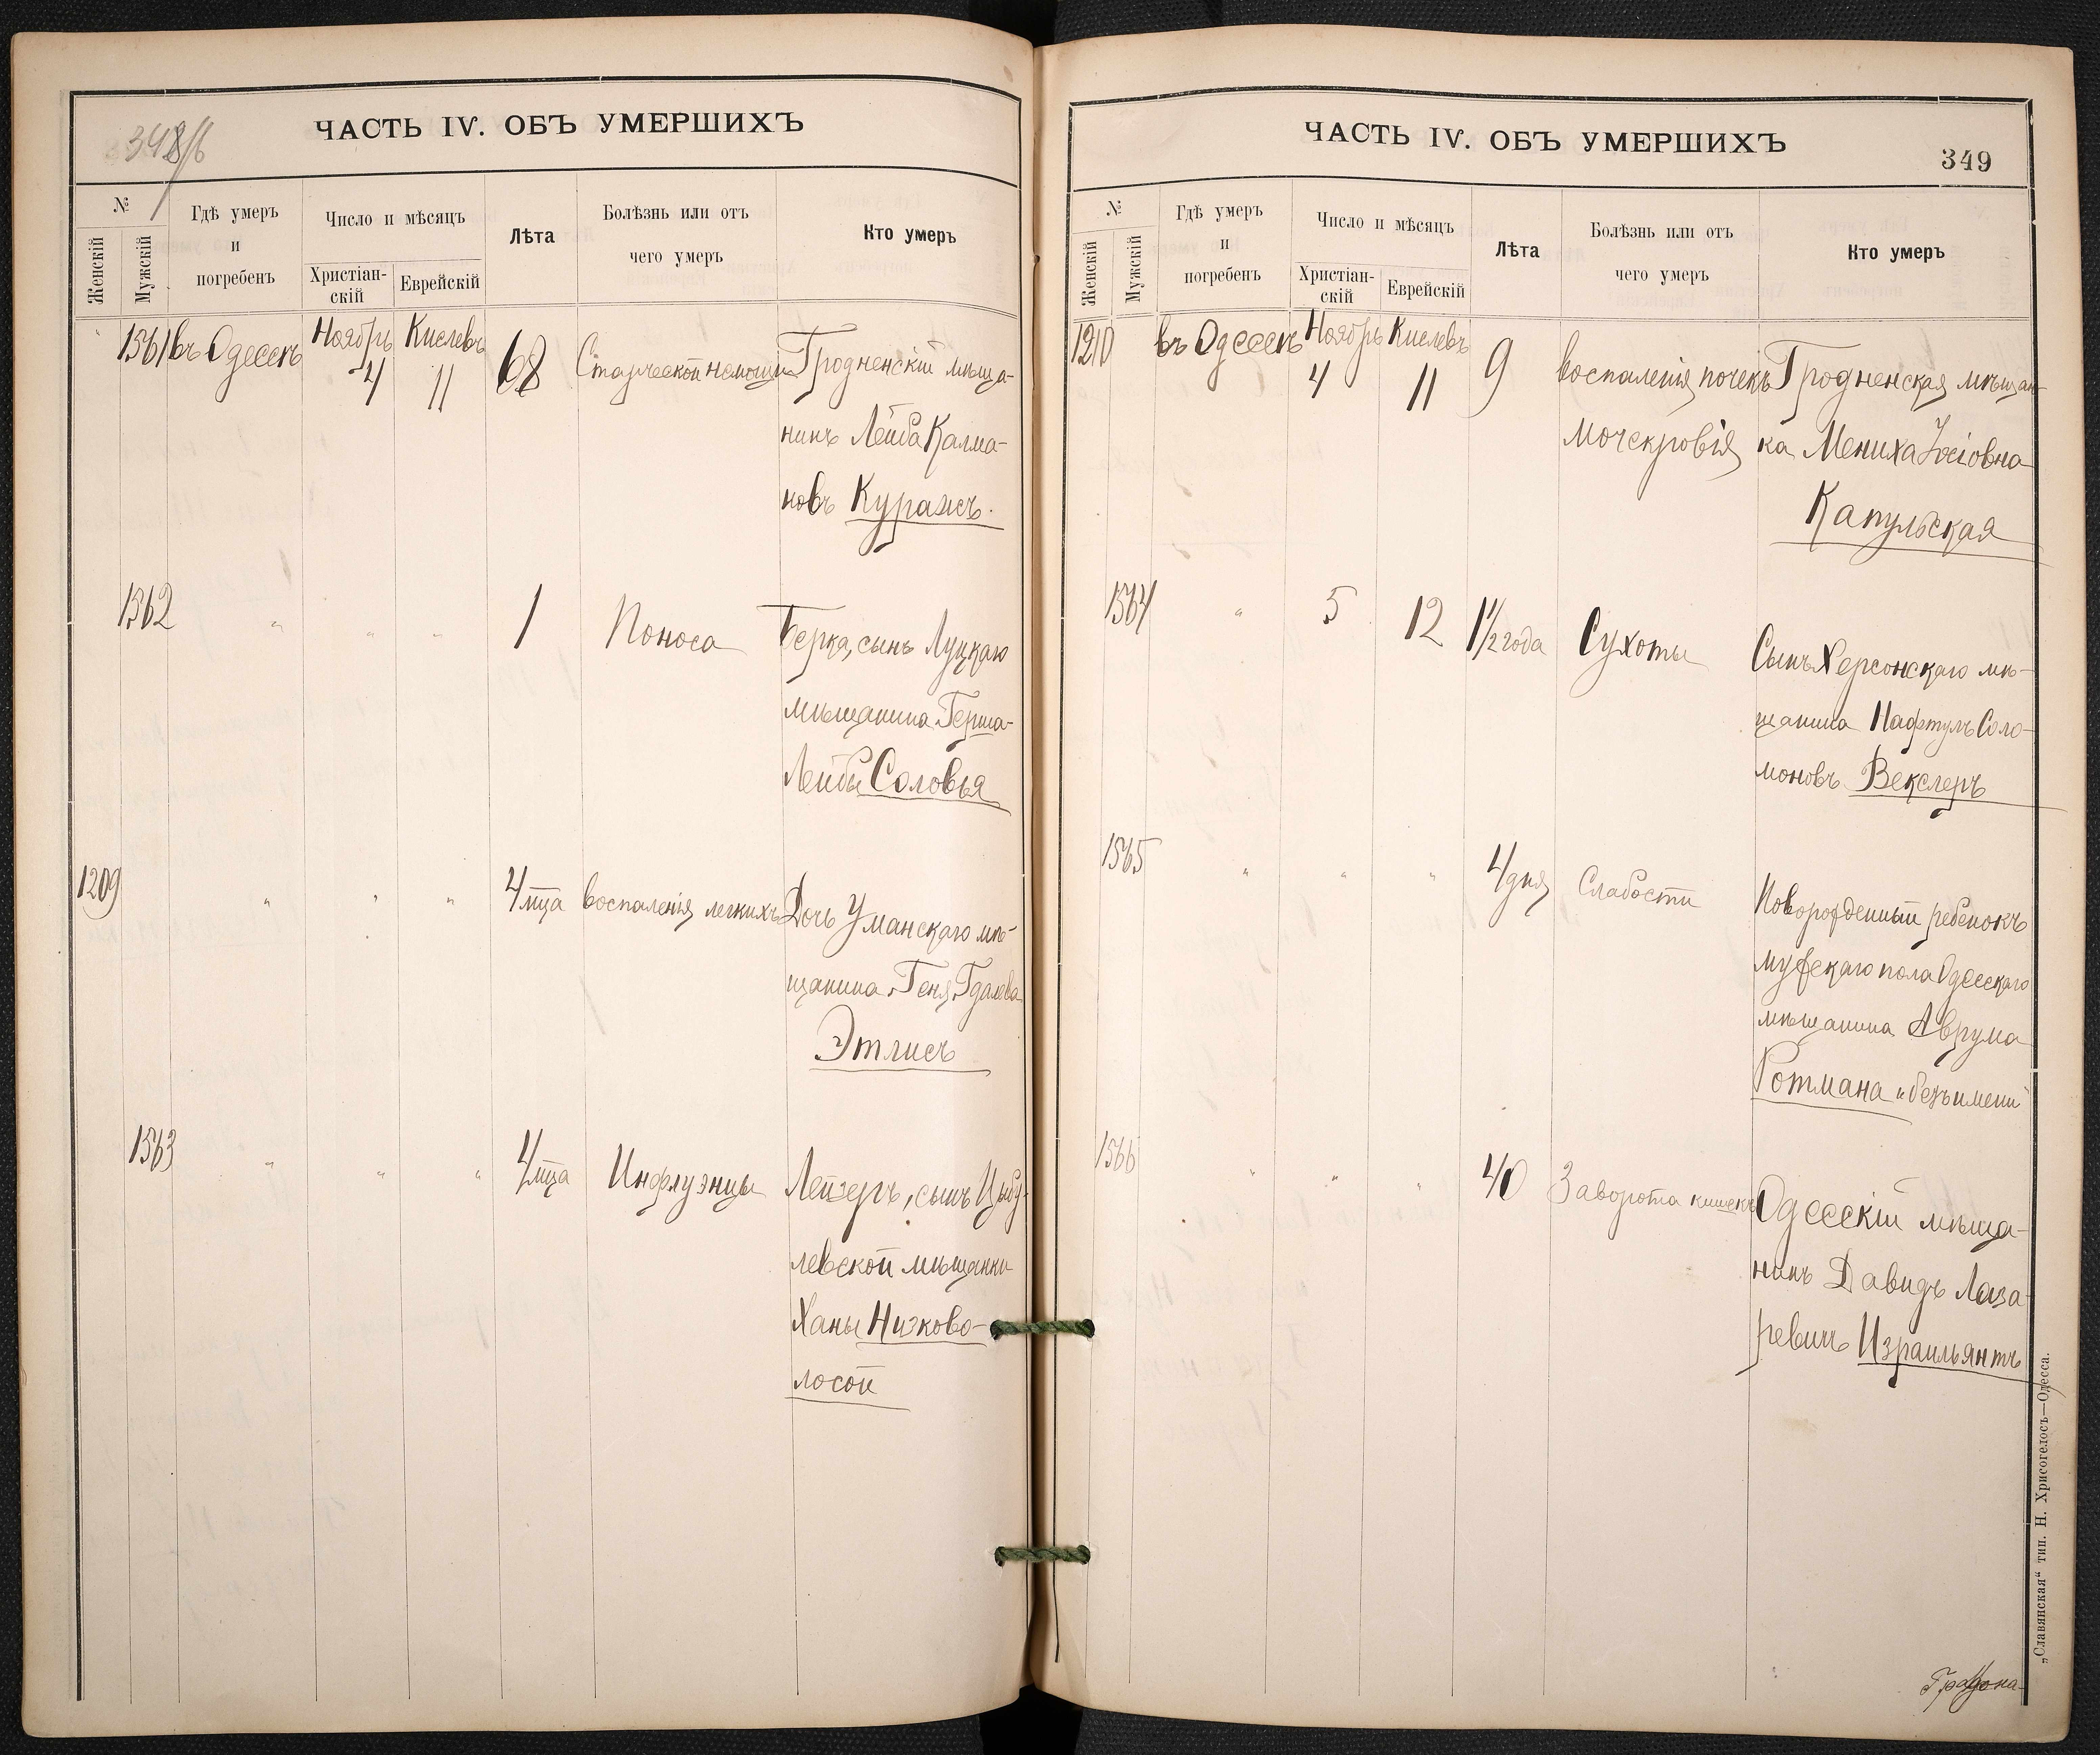 348/б
ЧАСТЬ IV. ОБЪ УМЕРШИХЪ
№
Женскій
Мужскій
Гдѣ умеръ
и
погребенъ
Число и мѣсяцъ
Христіан-
скій
Еврейскій
Лѣта
Болѣзнь или отъ
чего умеръ
Кто умеръ
1561 въ Одессѣ Ноябрь 4 Кислевъ 11 68 Старческой немощи Гродненскій мѣща-
нинъ Лейба Калма-
новъ Куражъ.
1562 " " " 1 Поноса Берка, сынъ Луцкаго
мѣщанина Герша-
Лейбы Соловья
1209 " " " 4 мца воспаленія легкихъ Дочь Уманскаго мѣ-
щанина Геня Гдалева
Этлисъ
1563 " " " 4 мца Инфлуэнцы Лейзеръ, сынъ Цыбу-
левской мѣщанки
Ханы Низково-
лосой
ЧАСТЬ IV. ОБЪ УМЕРШИХЪ
349
№
Женскій
Мужскій
Гдѣ умеръ
и
погребенъ
Число и мѣсяцъ
Христіан-
скій
Еврейскій
Лѣта
Болѣзнь или отъ
чего умеръ
Кто умеръ
1210 въ Одессѣ Ноябрь 4 Кислевъ 11 9 воспаленія почекъ Гродненская мѣщан-
мочекровія ка Мениха Іосіовна
Капульская
1564 " 5 12 1 1/2 года Сухоты Сынъ Херсонскаго мѣ-
щанина Нафтулъ Соло-
моновъ Векслеръ
1565 " " " 4 дня Слабости Новорожденный ребенокъ
мужскаго пола Одесскаго
мѣщанина Аврума
Ротмана "безъ имени"
1566 " " " 40 Заворота кишекъ Одесскій мѣща-
нинъ Давидъ Лаза-
ревичъ Израильянтъ
„Славянская“ тип. Н. Хрисогелосъ—Одесса.